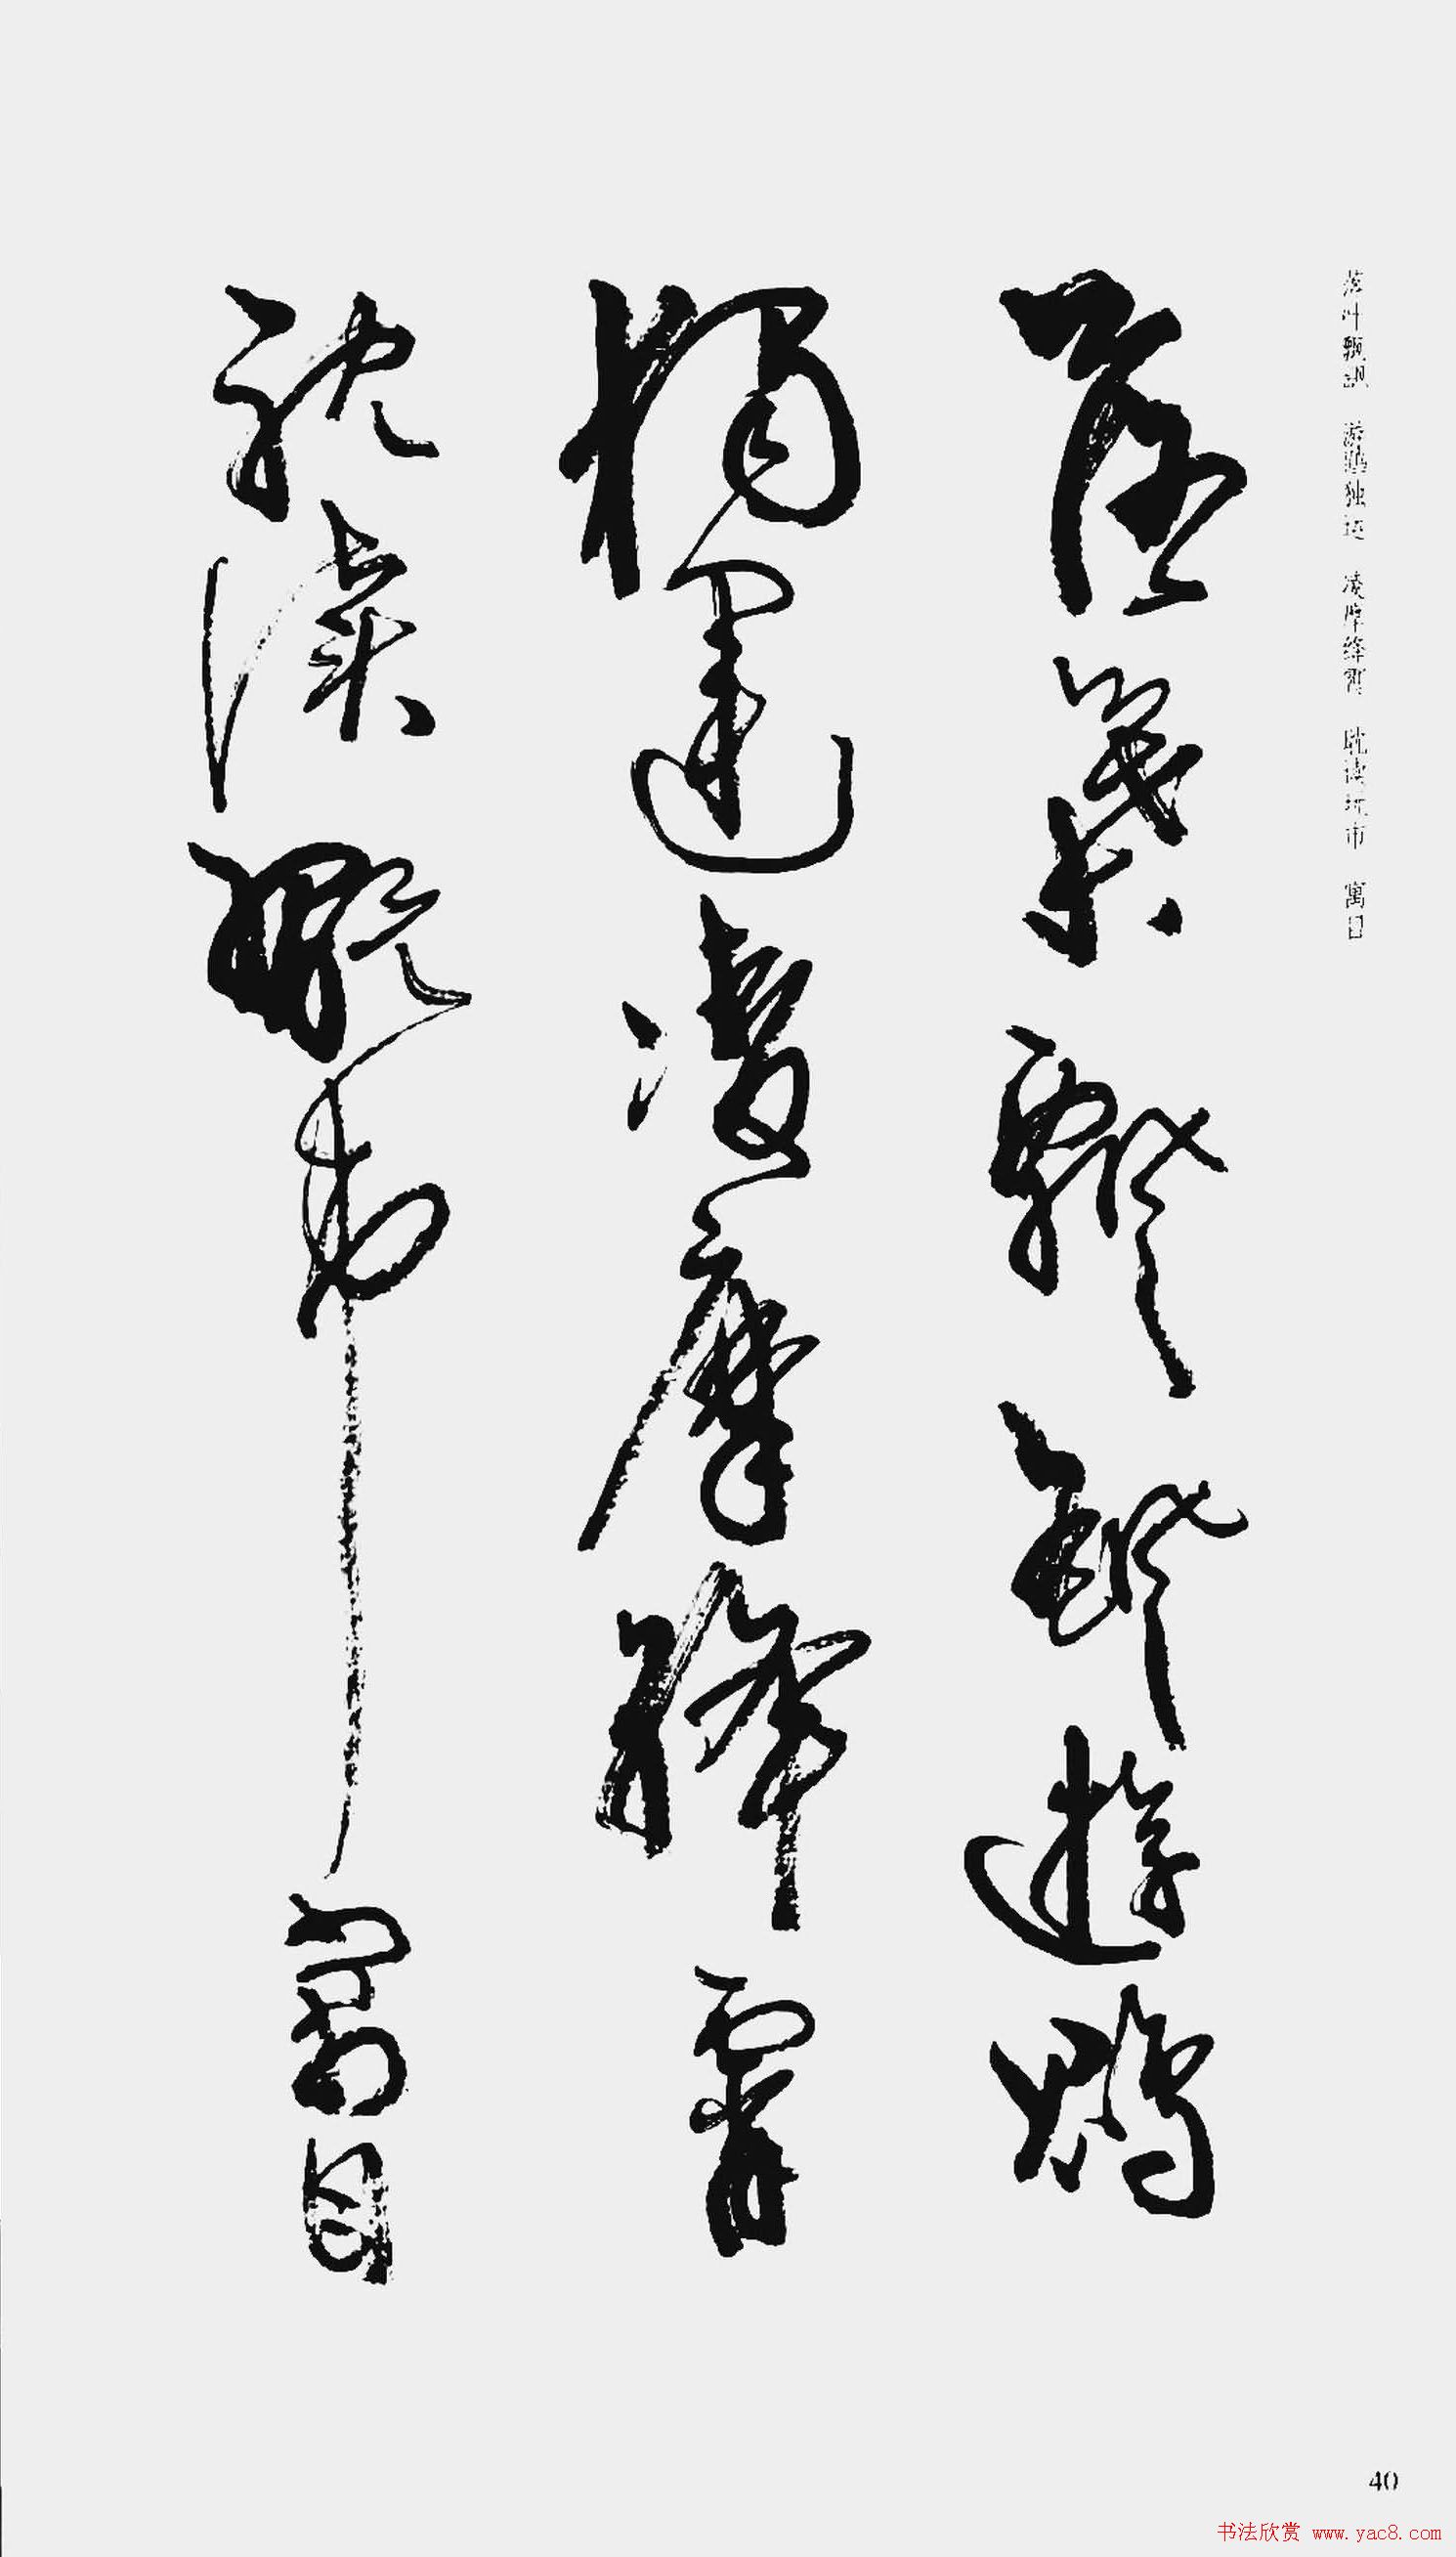 落叶飘飖　游鹍独运　凌摩绛霄　耽读玩市　寓目
落葉飄飖遊鵾
獨運凌摩絳霄
耽讀翫市寓目
40
书法欣赏 www.yac8.com